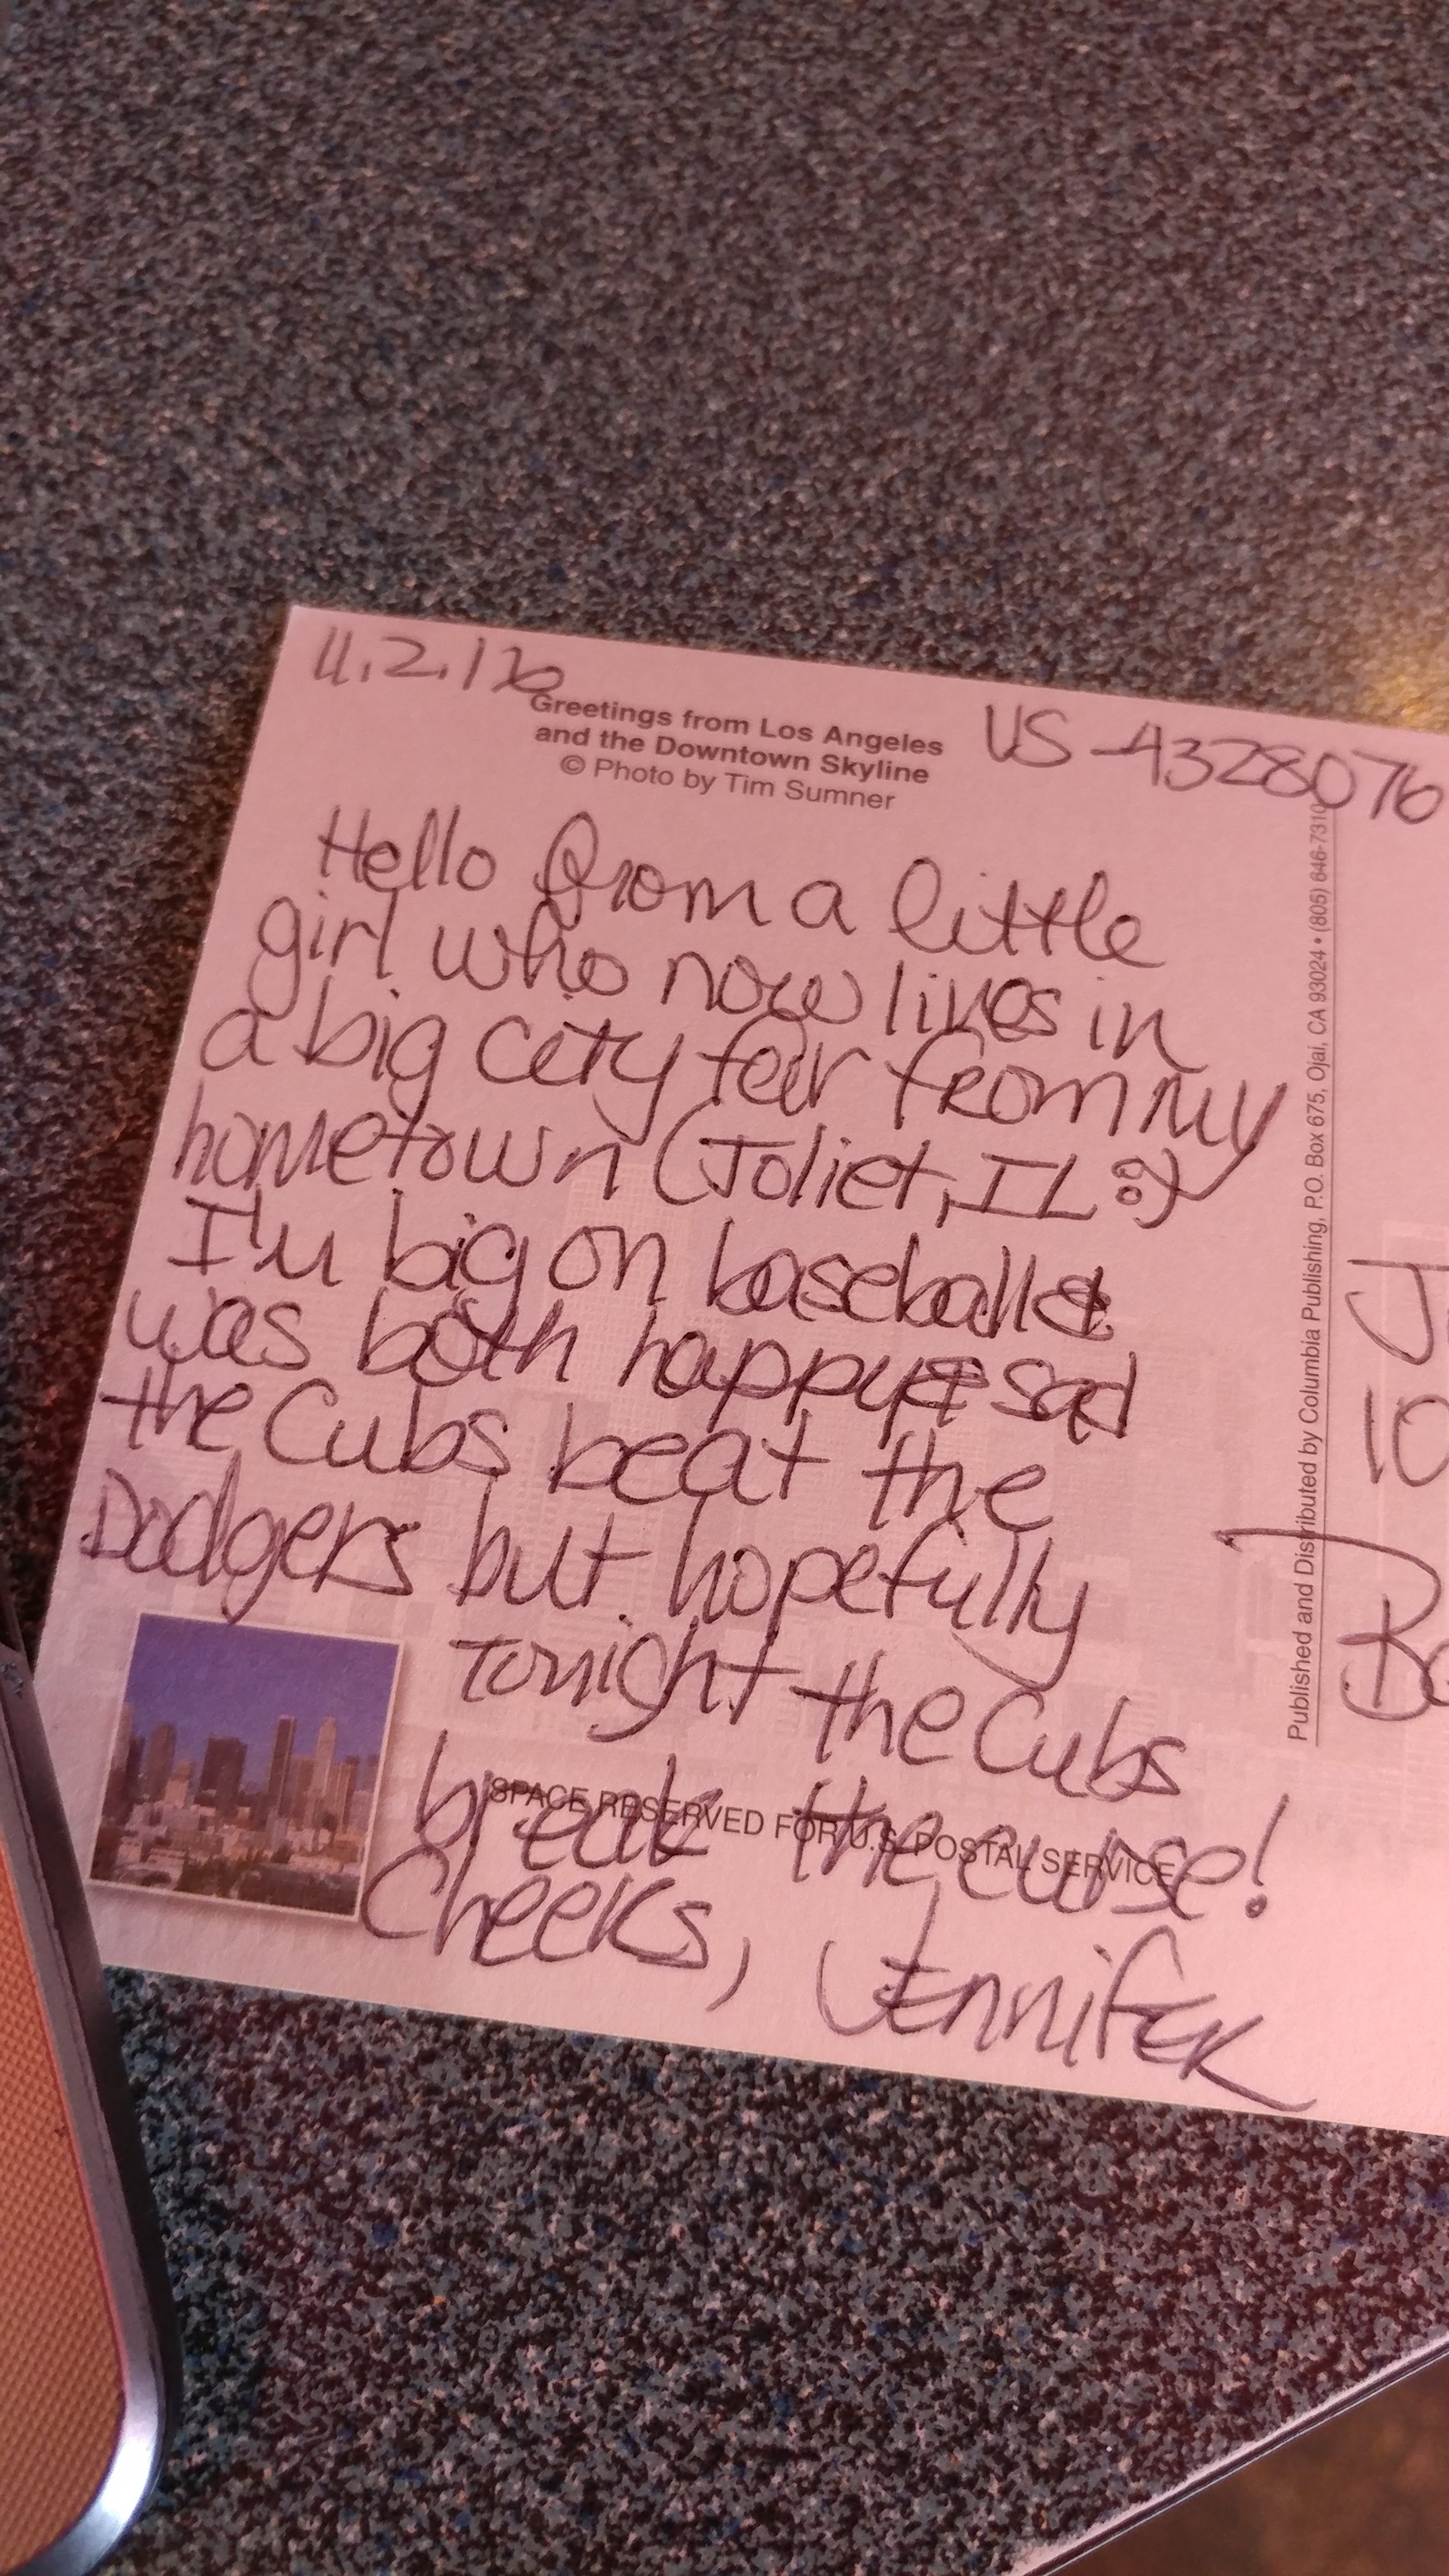 11.2.16
Greetings from Los Angeles
and the Downtown Skyline
© Photo by Tim Sumner
US-4328076
Hello from a little
girl who now lives in
a big city far from my
hometown (Joliet, IL :)
I'm big on baseball &
was both happy & sad
the Cubs beat the
Dodgers but hopefully
tonight the Cubs
break the curse!
SPACE RESERVED FOR U.S. POSTAL SERVICE
Cheers, Jennifer
Published and Distributed by Columbia Publishing, P.O. Box 675, Ojai, CA 93024 • (805) 646-7310
J
10
Bo